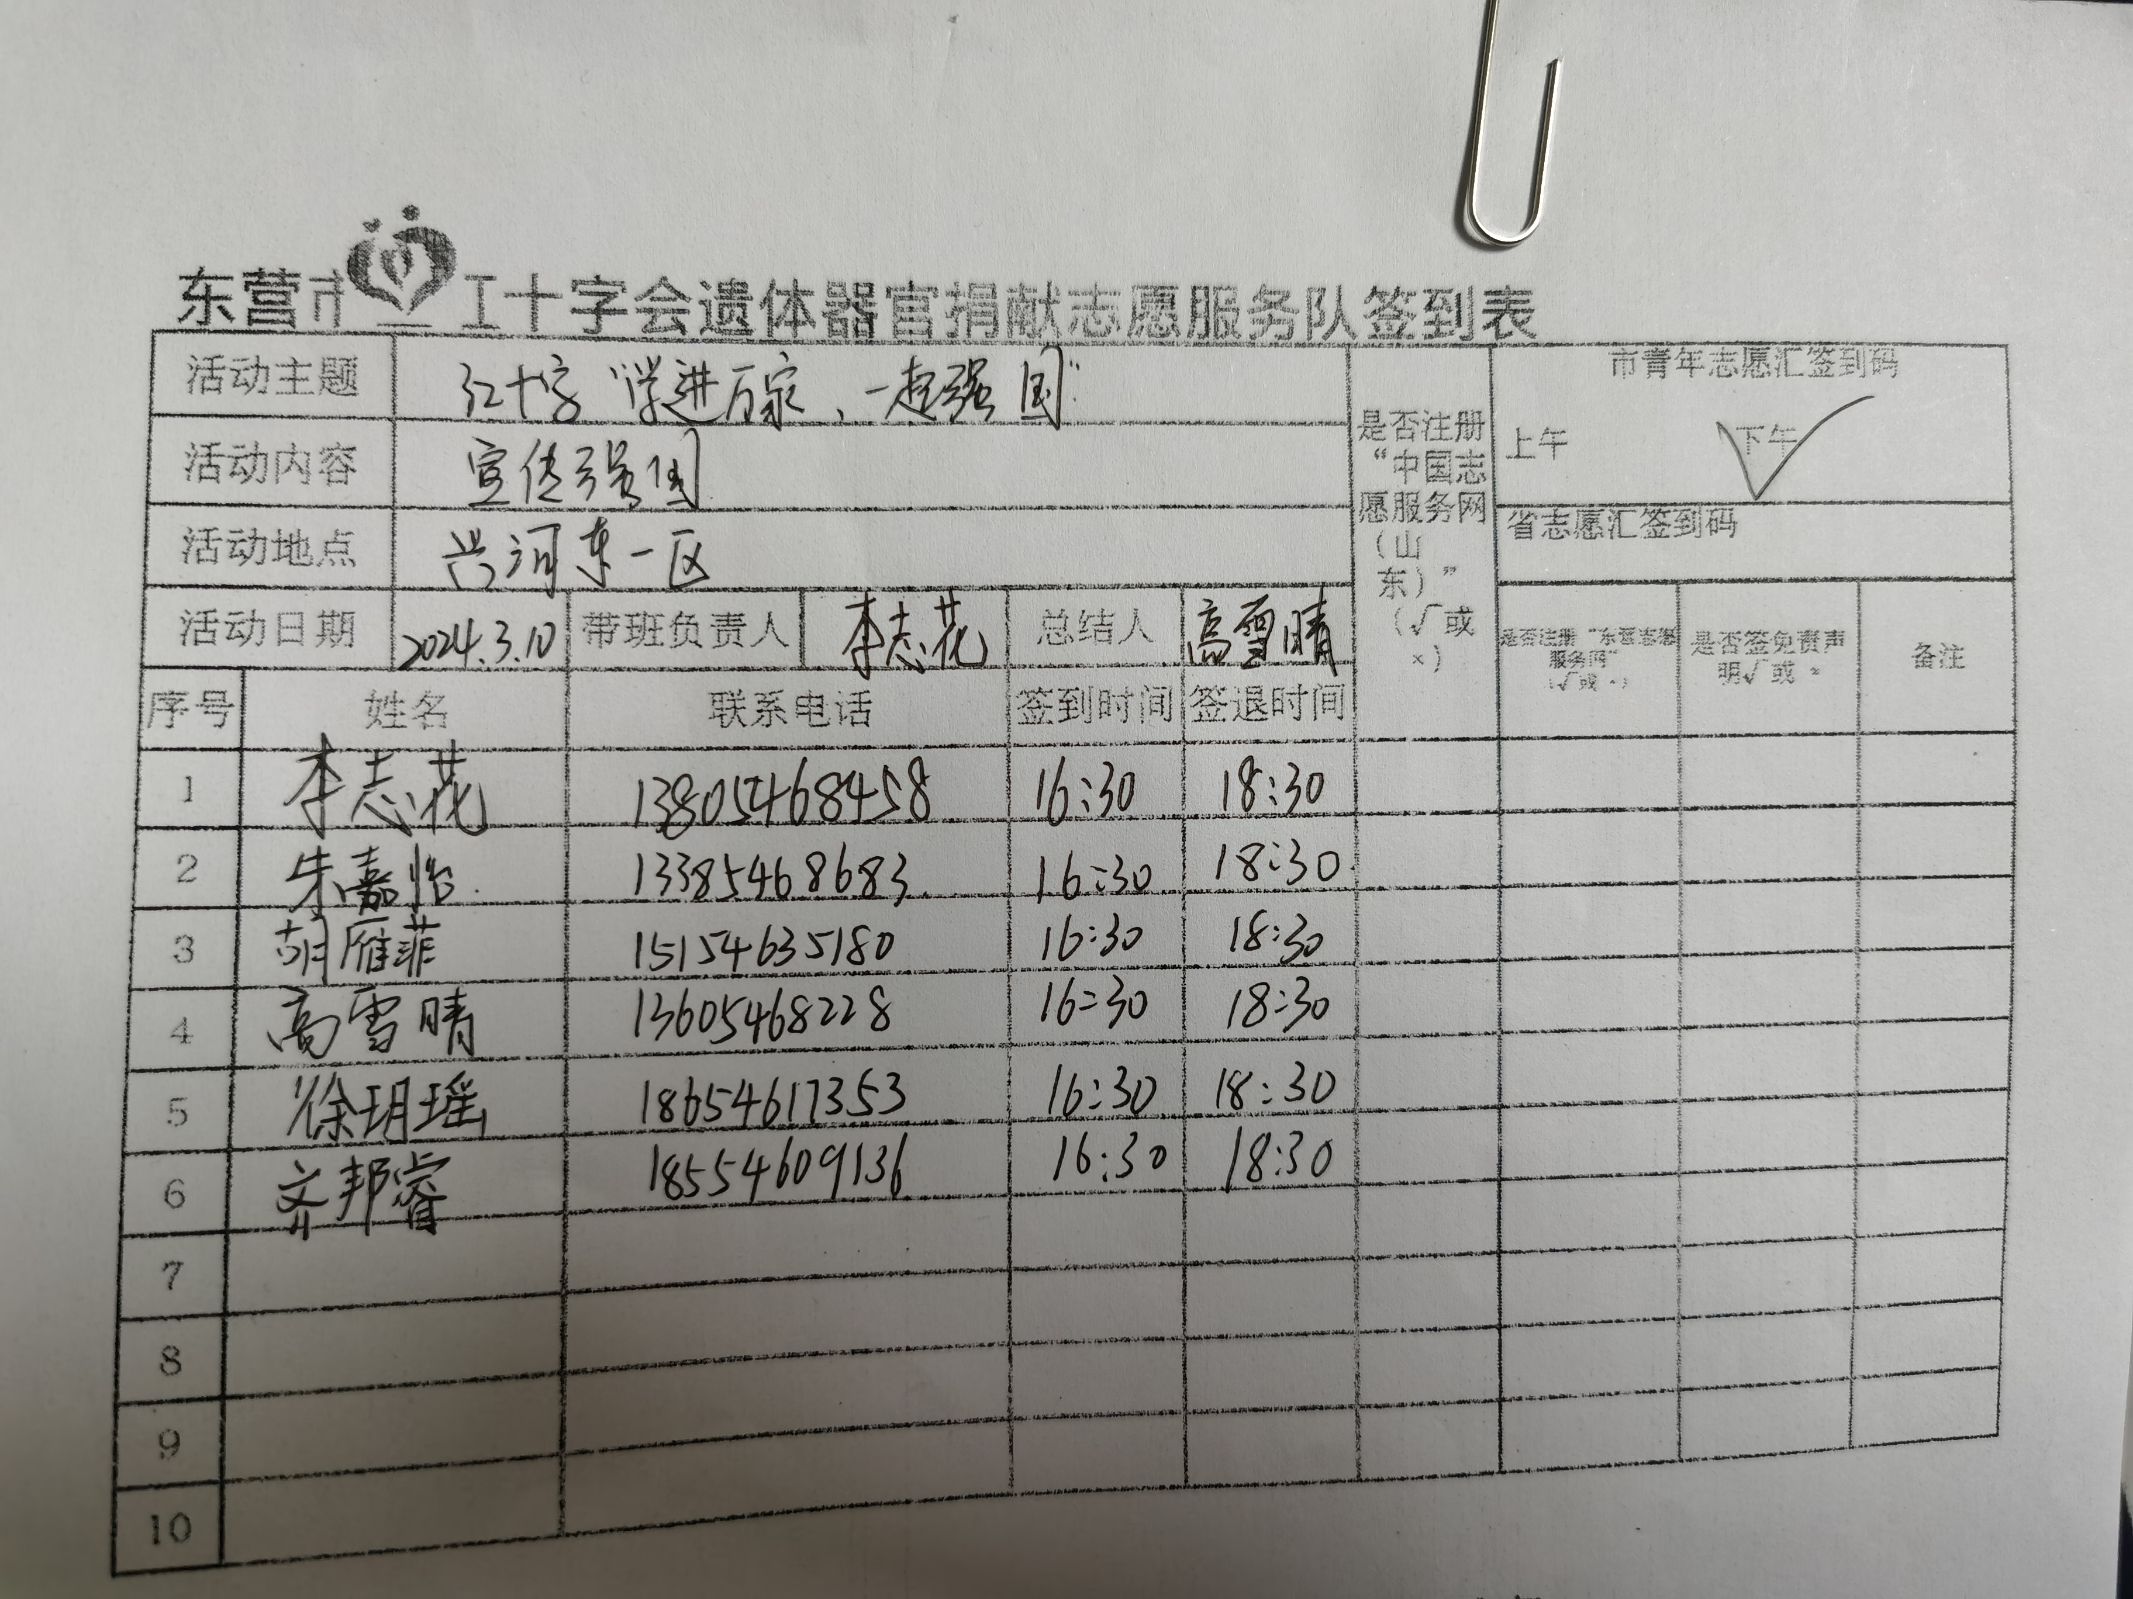 东营市红十字会遗体器官捐献志愿服务队签到表
活动主题 红十字“学进万家、一起强国”
活动内容 宣传强国
活动地点 兴河东一区
活动日期 2024.3.10 带班负责人 李志花 总结人 高雪晴
是否注册
“中国志
愿服务网
（山
东）”
（√或
×）
市青年志愿汇签到码
上午 下午 √
省志愿汇签到码
是否注册“东营志愿
服务网”
（√或×）
是否签免责声
明√或×
备注
序号 姓名 联系电话 签到时间 签退时间
1 李志花 13805468458 16:30 18:30
2 朱嘉怡 13385468683 16:30 18:30
3 胡雁菲 15154635180 16:30 18:30
4 高雪晴 13605468228 16:30 18:30
5 徐玥瑶 18654617353 16:30 18:30
6 齐邦睿 18554609136 16:30 18:30
7
8
9
10